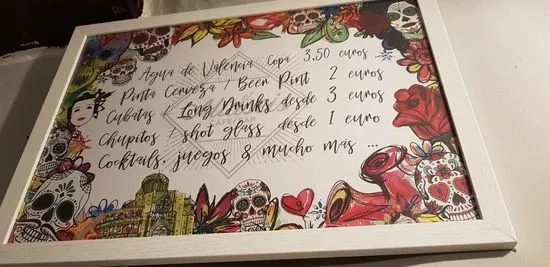 Agua de Valencia Copa 3,50 euros
Pinta Cerveza / Beer Pint 2 euros
Cubatas Long Drinks desde 3 euros
Chupitos / shot glass desde 1 euro
Cocktails, juegos & mucho más ...